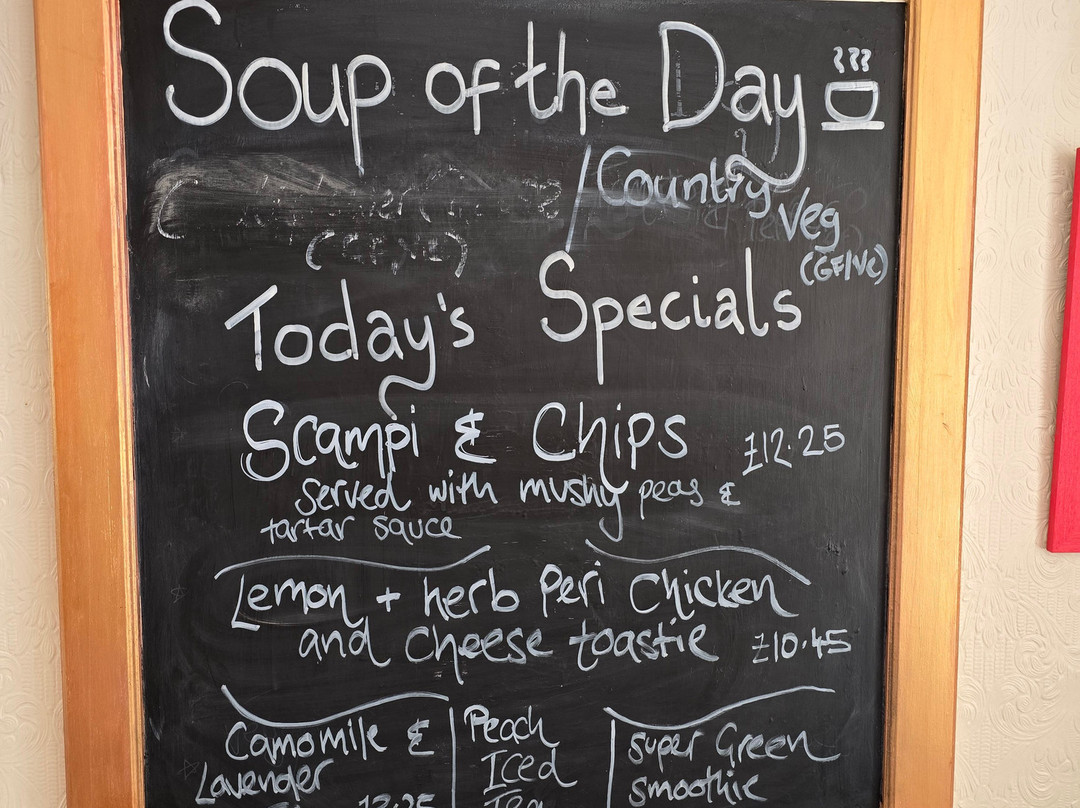 Soup of the Day
/Country
Veg
(GF/VE)
Today's Specials
Scampi & Chips £12.25
served with mushy peas &
tartar sauce
Lemon + herb Peri Chicken
and cheese toastie £10.45
Camomile &
Lavender
Peach
Iced
Tea
super Green
smoothie